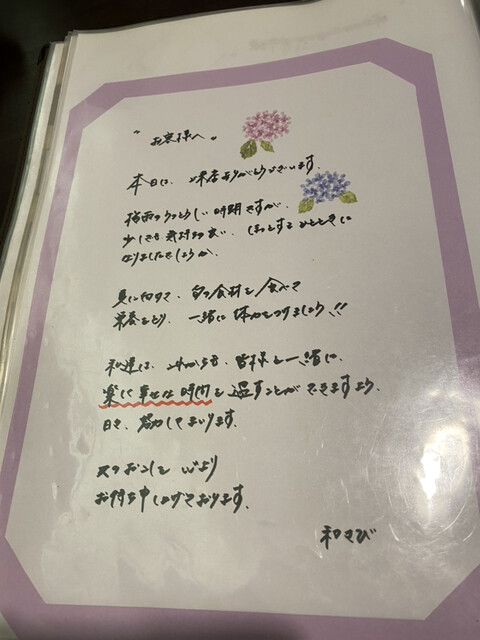 "お客様へ"
本日は、ご来店ありがとうございます。
梅雨のうっとうしい時期ですが、
少しでも気持ちの良い、ほっとするひとときに
なりましたでしょうか。
夏に向けて、旬の食材を食べて
栄養をとり、一緒に体力をつけましょう!!
私達は、これからも、皆様と一緒に、
楽しく幸せな時間を過すことができますよう、
日々、努力してまいります。
又のおこしを心より
お待ち申し上げております。
和さび